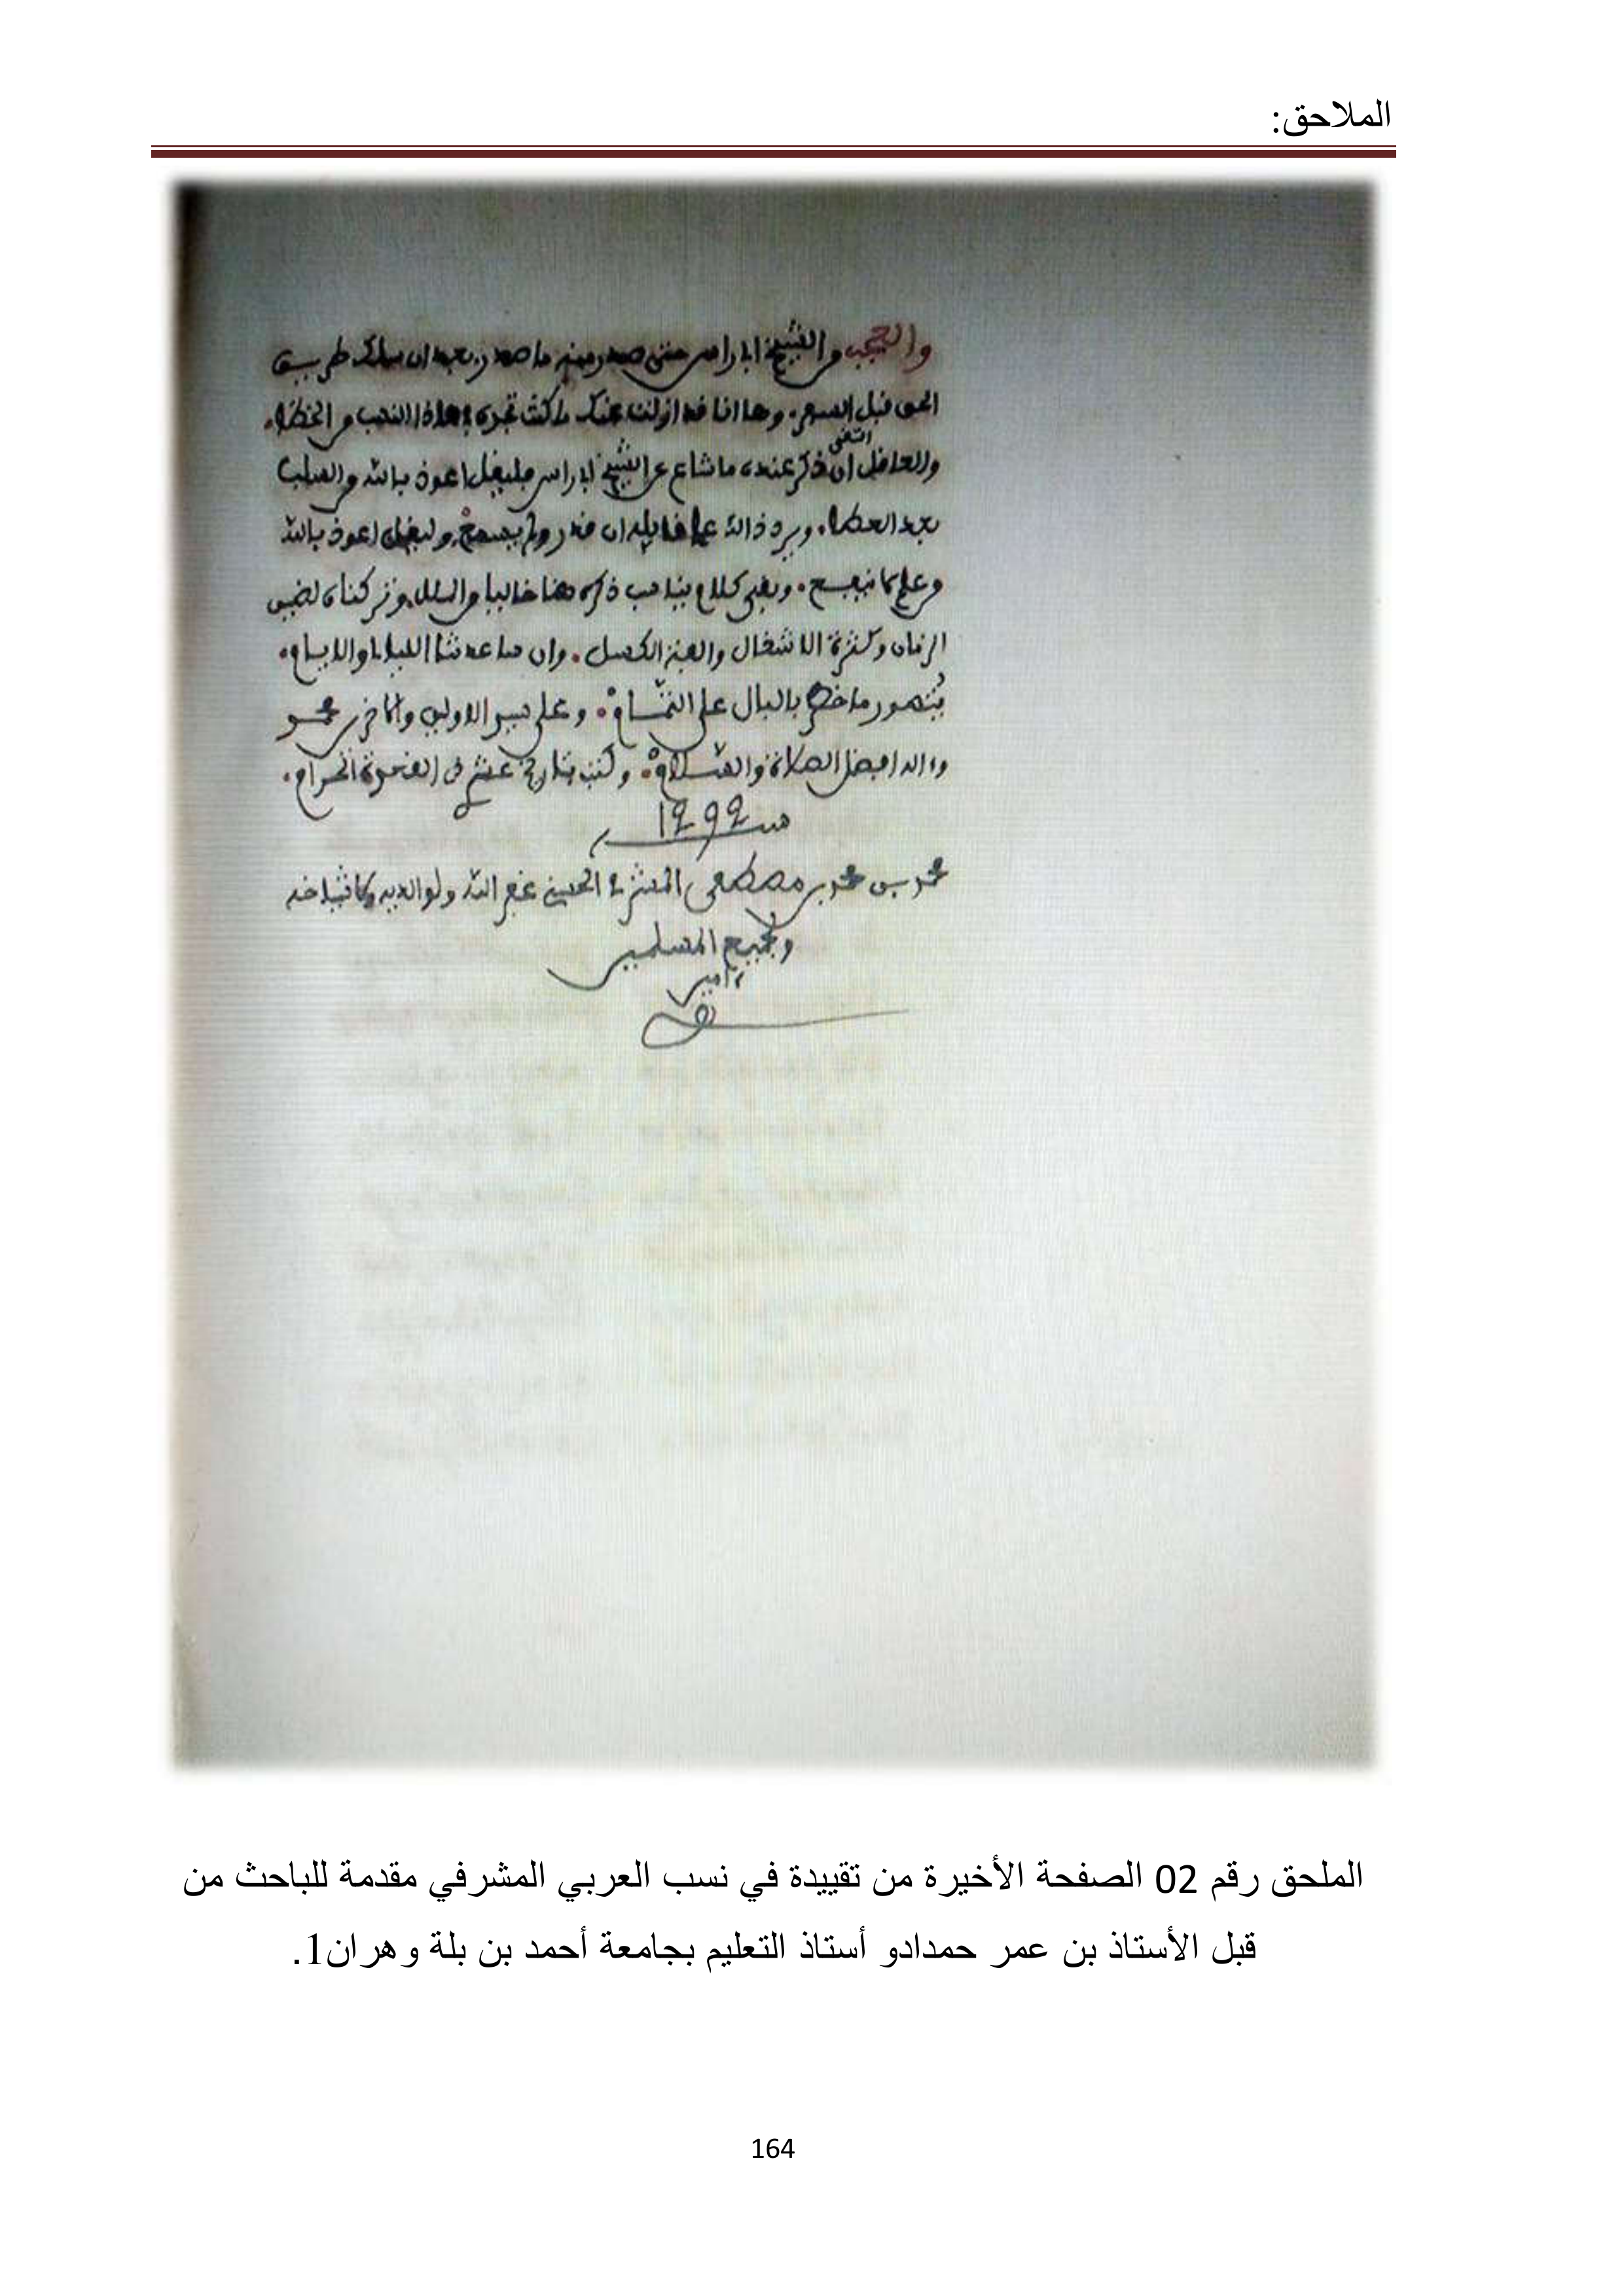 الملاحق:
والعجب من الشيخ ابي راس متى صدر منه ما صدر بعد ان سلك طريق
الحق قبل وها انا قد ازلت عنك ما كنت تجده بهذا
والعاقل اتقى ان ذكر عنده ما شاع عن الشيخ ابي راس فليقل اعوذ بالله من السلب
بعد العطا. ويرد ذالك على قايله ان قدر ولم يسمع، وليقل اعوذ بالله
من علم لا ينفع. وبقي كلام يناسب ذكره هنا تركناه لضيق
الزمان وكثرة الاشغال والكسل. وان ساعدتنا الليالي والايام.
بالبال على التمام. وعلى سيد الاولين والاخرين محمد
وءاله افضل الصلاة والسلام. وكتب بتاريخ عشر من القعدة الحرام.
سنة 1292
محمد بن محمد بن مصطفى المشرفي الحسني غفر الله ولوالديه ولاشياخه
ولجميع المسلمين
ءامين
الملحق رقم 02 الصفحة الأخيرة من تقييدة في نسب العربي المشرفي مقدمة للباحث من
قبل الأستاذ بن عمر حمدادو أستاذ التعليم بجامعة أحمد بن بلة وهران1.
164